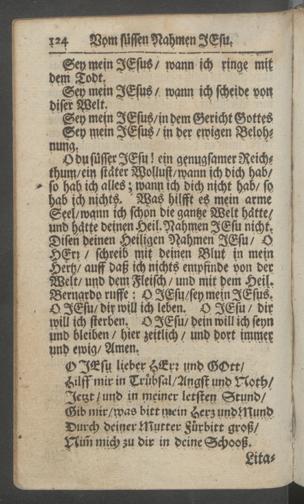 124 Vom süssen Nahmen JEsu.
Sey mein JEsus / wann ich ringe mit
dem Todt.
Sey mein JEsus / wann ich scheide von
diser Welt.
Sey mein JEsus / in dem Gericht Gottes
Sey mein JEsus / in der ewigen Beloh-
nung.
O du süsser JEsu! ein genugsamer Reich-
thum / ein stäter Wollust / wann ich dich hab /
so hab ich alles; wann ich dich nicht hab / so
hab ich nichts. Was hilfft es mein arme
Seel / wann ich schon die gantze Welt hätte /
und hätte deinen Heil. Nahmen JEsu nicht.
Disen deinen Heiligen Nahmen JEsu / O
HErr / schreib mit deinen Blut in mein
Hertz / auff daß ich nichts empfinde von der
Welt / und dem Fleisch / und mit dem Heil.
Bernardo ruffe: O JEsu / sey mein JEsus.
O JEsu / dir will ich leben. O JEsu / dir
will ich sterben. O JEsu / dein will ich seyn
und bleiben / hier zeitlich / und dort immer
und ewig / Amen.
O JEsu lieber HErr und GOtt /
Hilff mir in Trübsal / Angst und Noth /
Jetzt / und in meiner letsten Stund /
Gib mir / was bitt mein Herz und Mund
Durch deiner Mutter Fürbitt groß /
Nim̃ mich zu dir in deine Schooß.
Lita-